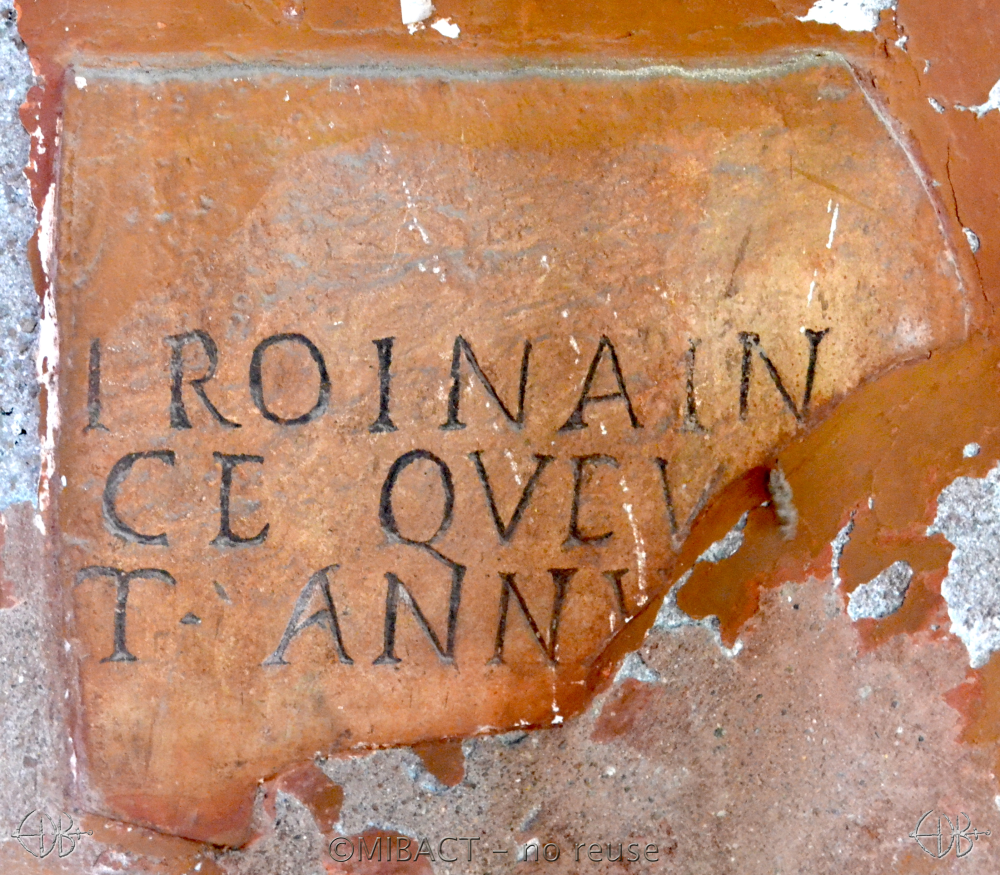 IROINAIN
CE QVEV
T· ANNV
©MIBACT – no reuse